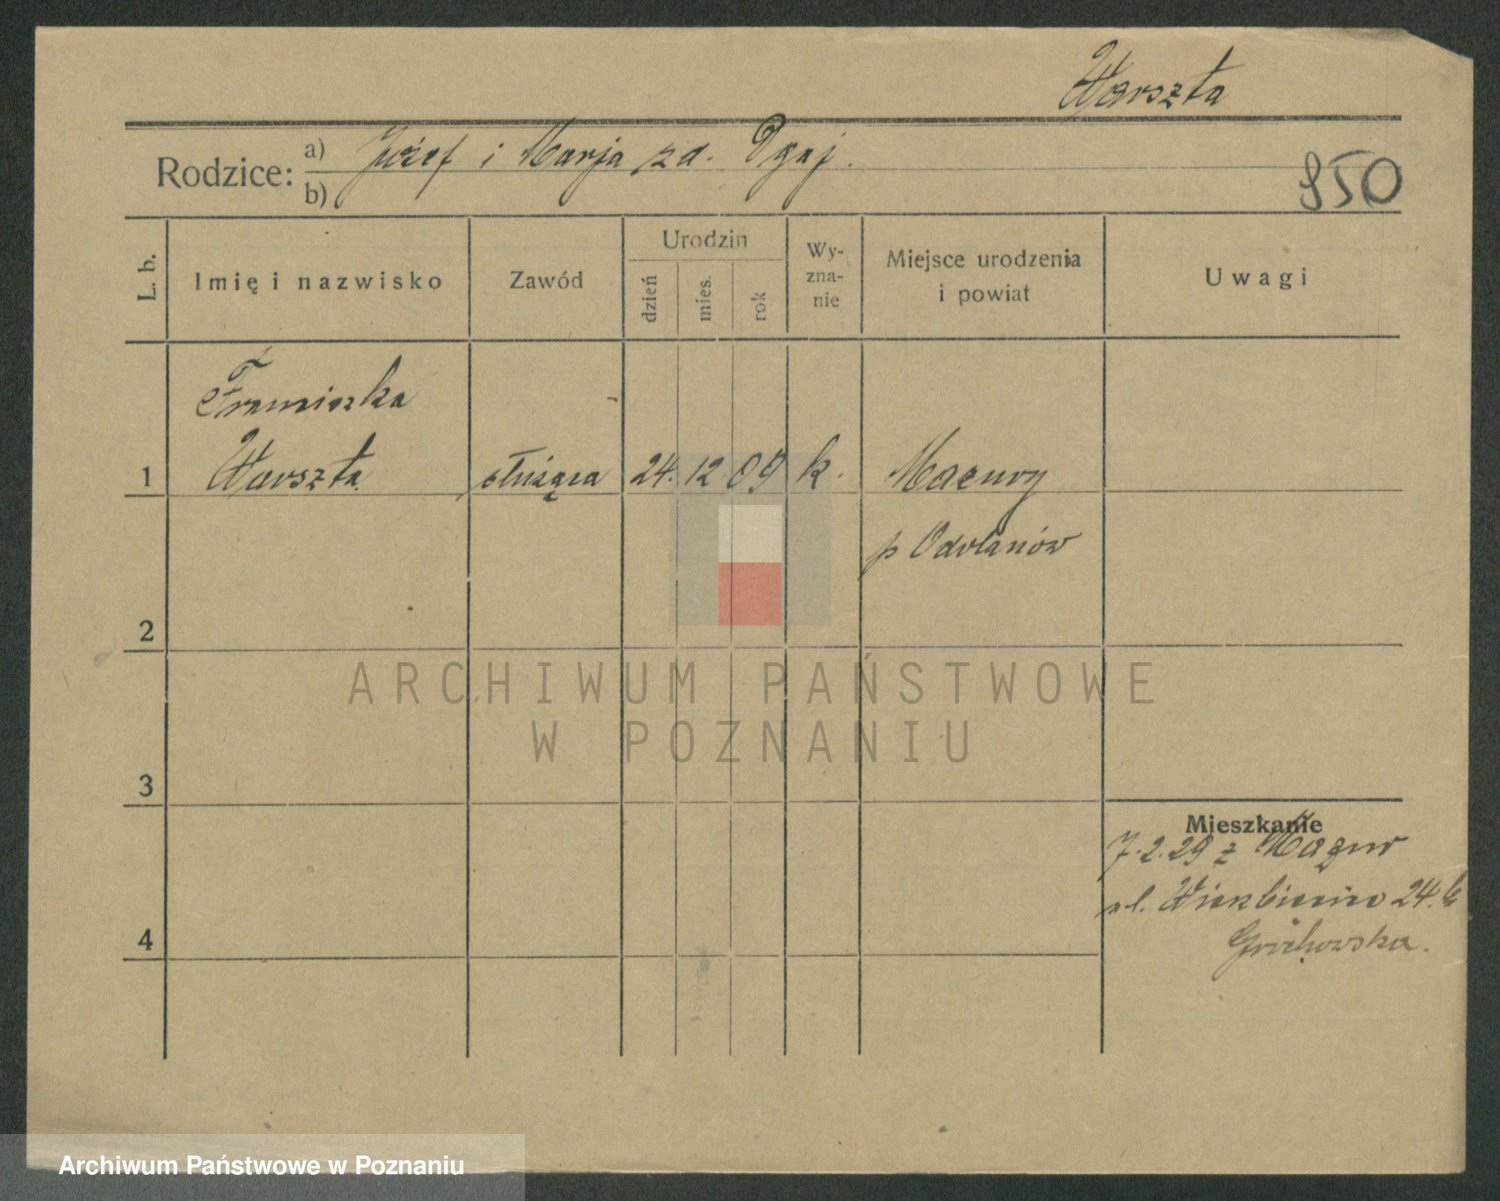 Warszta
Rodzice: a) Józef i Marja zd. Pgaj.
b)
950
L. b.
Imię i nazwisko
Zawód
Urodzin
dzień
mies.
rok
Wy-
zna-
nie
Miejsce urodzenia
i powiat
Uwagi
Franciszka
1 Warszta służąca 24. 12 09 k. Mazury
p Odolanów
2
3
4
Mieszkanie
7.2.29 z Mazur
ul. 24.
Grochowska.
ARCHIWUM PAŃSTWOWE
W POZNANIU
Archiwum Państwowe w Poznaniu